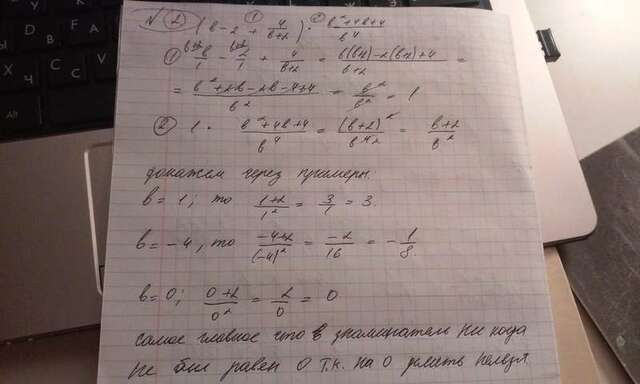 № ② (в-2 + 4/(в+2)) · (в²+4в+4)/в⁴
① в/1 - 2/1 + 4/(в+2) = (в(в+2)-2(в+2)+4)/(в+2) =
= (в²+2в-2в-4+4)/в² = в²/в² = 1
② 1 · (в²+4в+4)/в⁴ = (в+2)²/в⁴ = (в+2)/в²
докажем через примеры.
в=1; то (1+2)/1² = 3/1 = 3.
в=-4, то (-4+2)/(-4)² = -2/16 = -1/8.
в=0; (0+2)/0² = 2/0 = 0
самое главное что в знаминателе ни когда
не был равен 0 т.к. на 0 делить нельзя.